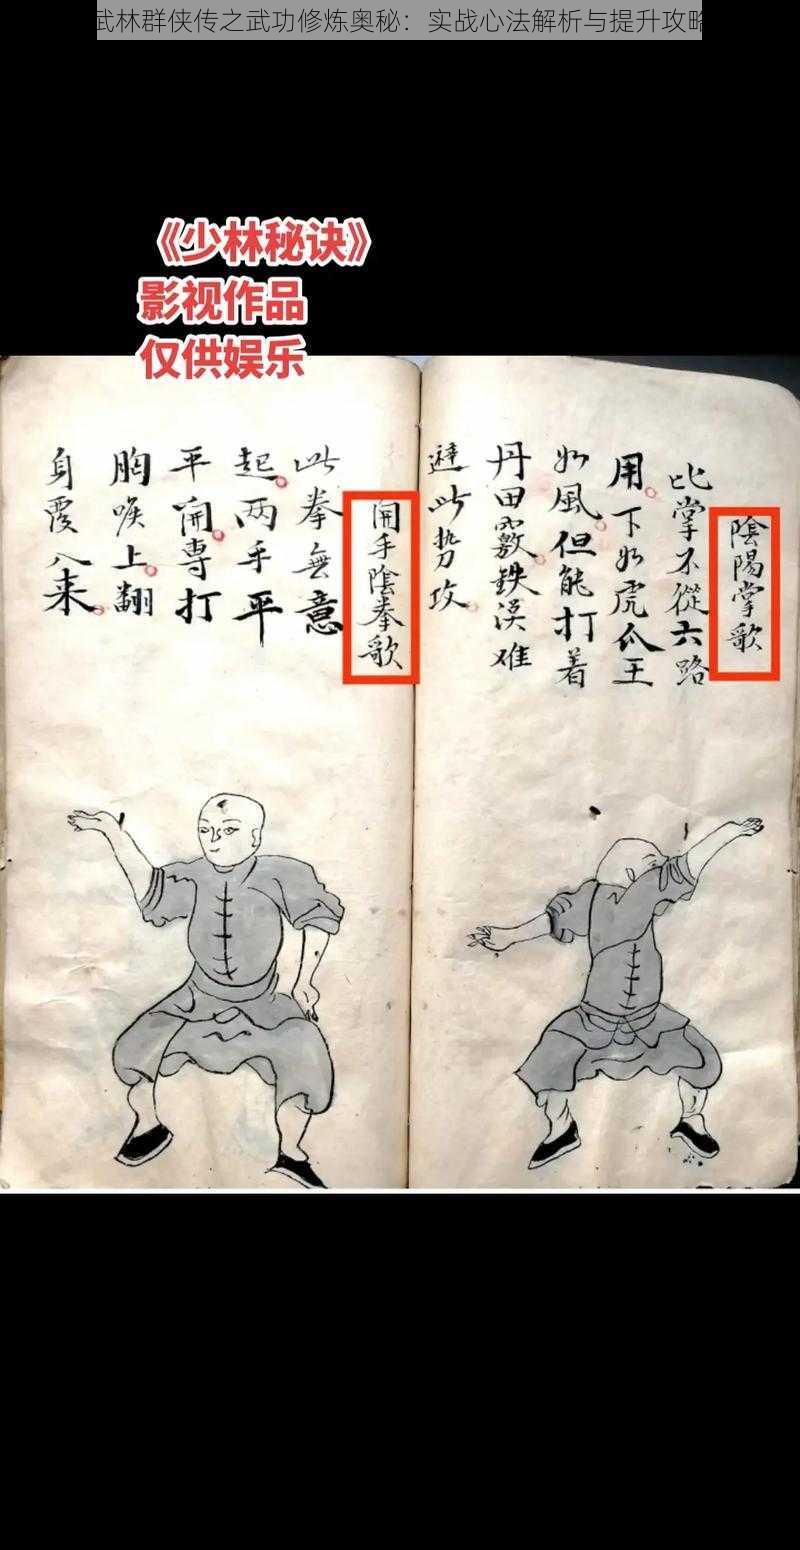 武林群侠传之武功修炼奥秘：实战心法解析与提升攻略
《少林秘诀》
影视作品
仅供娱乐
陰陽掌歌
比掌不從六路
用下如虎爪王
如風但能打着
丹田竅鉄漢难
避此势攻
開手陰拳歌
此拳無意
起两手平
平開專打
胸喉上翻
身覆入来